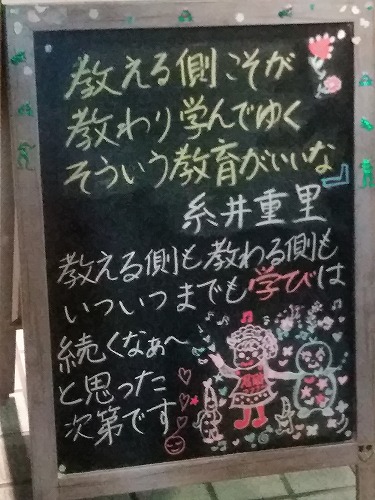 教える側こそが
教わり学んでゆく
そういう教育がいいな」
糸井重里
教える側も教わる側も
いついつまでも学びは
続くなぁ〜
と思った
次第です